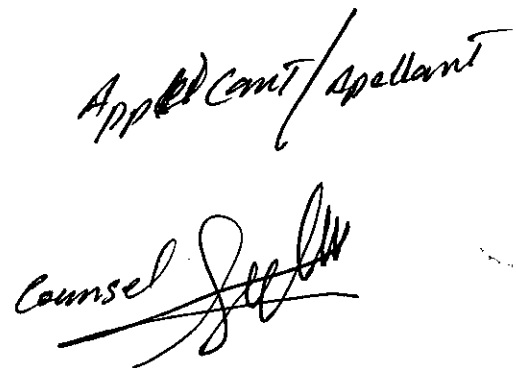 Applicant/Apellant
Counsel